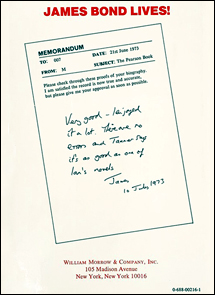 JAMES BOND LIVES!
MEMORANDUM
TO: 007 DATE: 21st June 1973
FROM: M SUBJECT: The Pearson Book
Please check through these proofs of your biography.
I am satisfied the record is now true and accurate,
but please give me your approval as soon as possible.
Very good – I enjoyed
it a lot. There are no
errors and Tanner says
it's as good as one of
Ian's novels
James
10 July 1973
WILLIAM MORROW & COMPANY, INC.
105 Madison Avenue
New York, New York 10016
0-688-00216-1